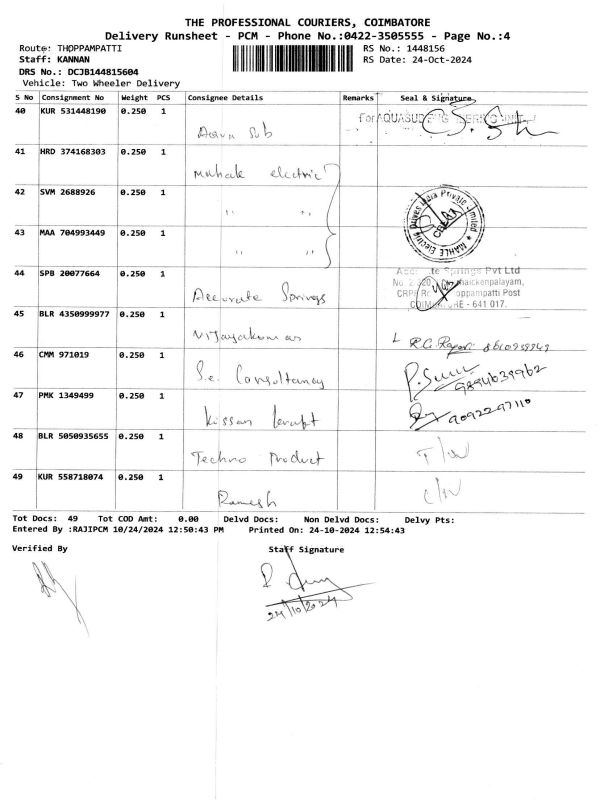 THE PROFESSIONAL COURIERS, COIMBATORE
Delivery Runsheet - PCM - Phone No.:0422-3505555 - Page No.:4
Route: THOPPAMPATTI
RS No.: 1448156
Staff: KANNAN
RS Date: 24-Oct-2024
DRS No.: DCJB144815604
Vehicle: Two Wheeler Delivery
S No Consignment No Weight PCS Consignee Details Remarks Seal & Signature
40 KUR 531448190 0.250 1
For AQUASUB
Aqua Sub
41 HRD 374168303 0.250 1
Mahale electric
42 SVM 2688926 0.250 1
" "
43 MAA 704993449 0.250 1
" "
MAHLE Electric Drives India Private Limited
44 SPB 20077664 0.250 1
Springs Pvt Ltd
Accurate Springs
oppampatti Post
RE - 641 017.
45 BLR 4350999977 0.250 1
Vijayakumar
46 CMM 971019 0.250 1
S.e. Consultancy
9894639962
47 PMK 1349499 0.250 1
Kissan
9092297110
48 BLR 5050935655 0.250 1
Techno Product
T/W
49 KUR 558718074 0.250 1
Ramesh
C/W
Tot Docs: 49 Tot COD Amt: 0.00 Delvd Docs: Non Delvd Docs: Delvy Pts:
Entered By :RAJIPCM 10/24/2024 12:50:43 PM Printed On: 24-10-2024 12:54:43
Verified By Staff Signature
24/10/2024